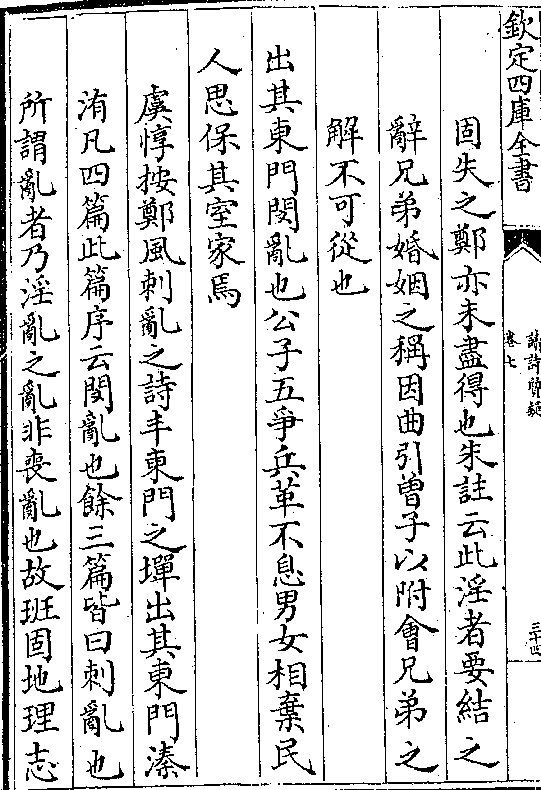 欽定四庫全書
讀詩質疑
卷七
三十四
固失之鄭亦未盡得也朱註云此淫者要結之
辭兄弟婚姻之稱因曲引曾子以附會兄弟之
解不可從也
出其東門閔亂也公子五爭兵革不息男女相棄民
人思保其室家焉
虞惇按鄭風刺亂之詩丰東門之墠出其東門溱
洧凡四篇此篇序云閔亂也餘三篇皆曰刺亂也
所謂亂者乃淫亂之亂非喪亂也故班固地理志